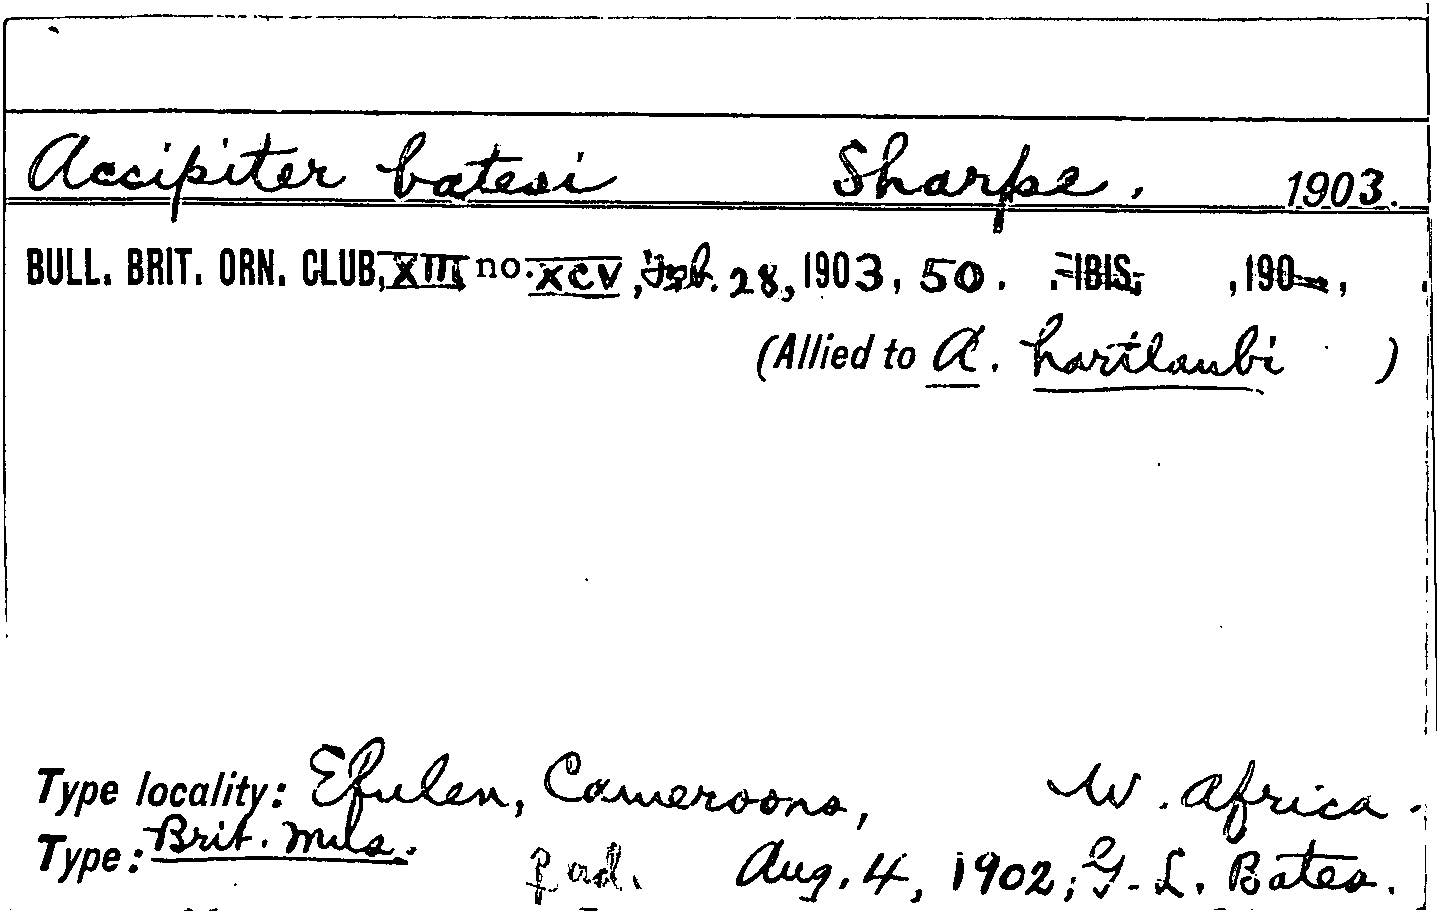 Accipiter batesi Sharpe. 1903.
BULL. BRIT. ORN. CLUB, XIII no. XCV, Feb. 28, 1903, 50. IBIS, ,190 , .
(Allied to A. hartlaubi )
Type locality: Efulen, Cameroons, W. Africa.
Type: Brit. Mus. ad. Aug. 4, 1902; G. L. Bates.